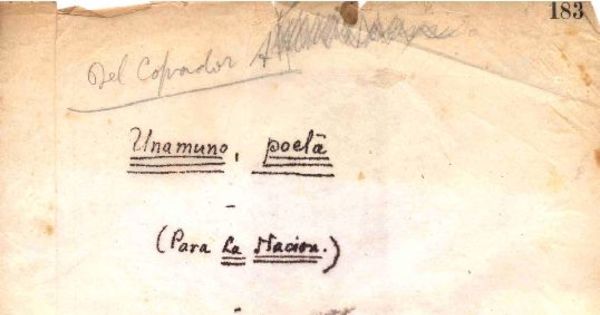 183
Del Copiador A
Unamuno, poeta
-
(Para La Nacion.)
-